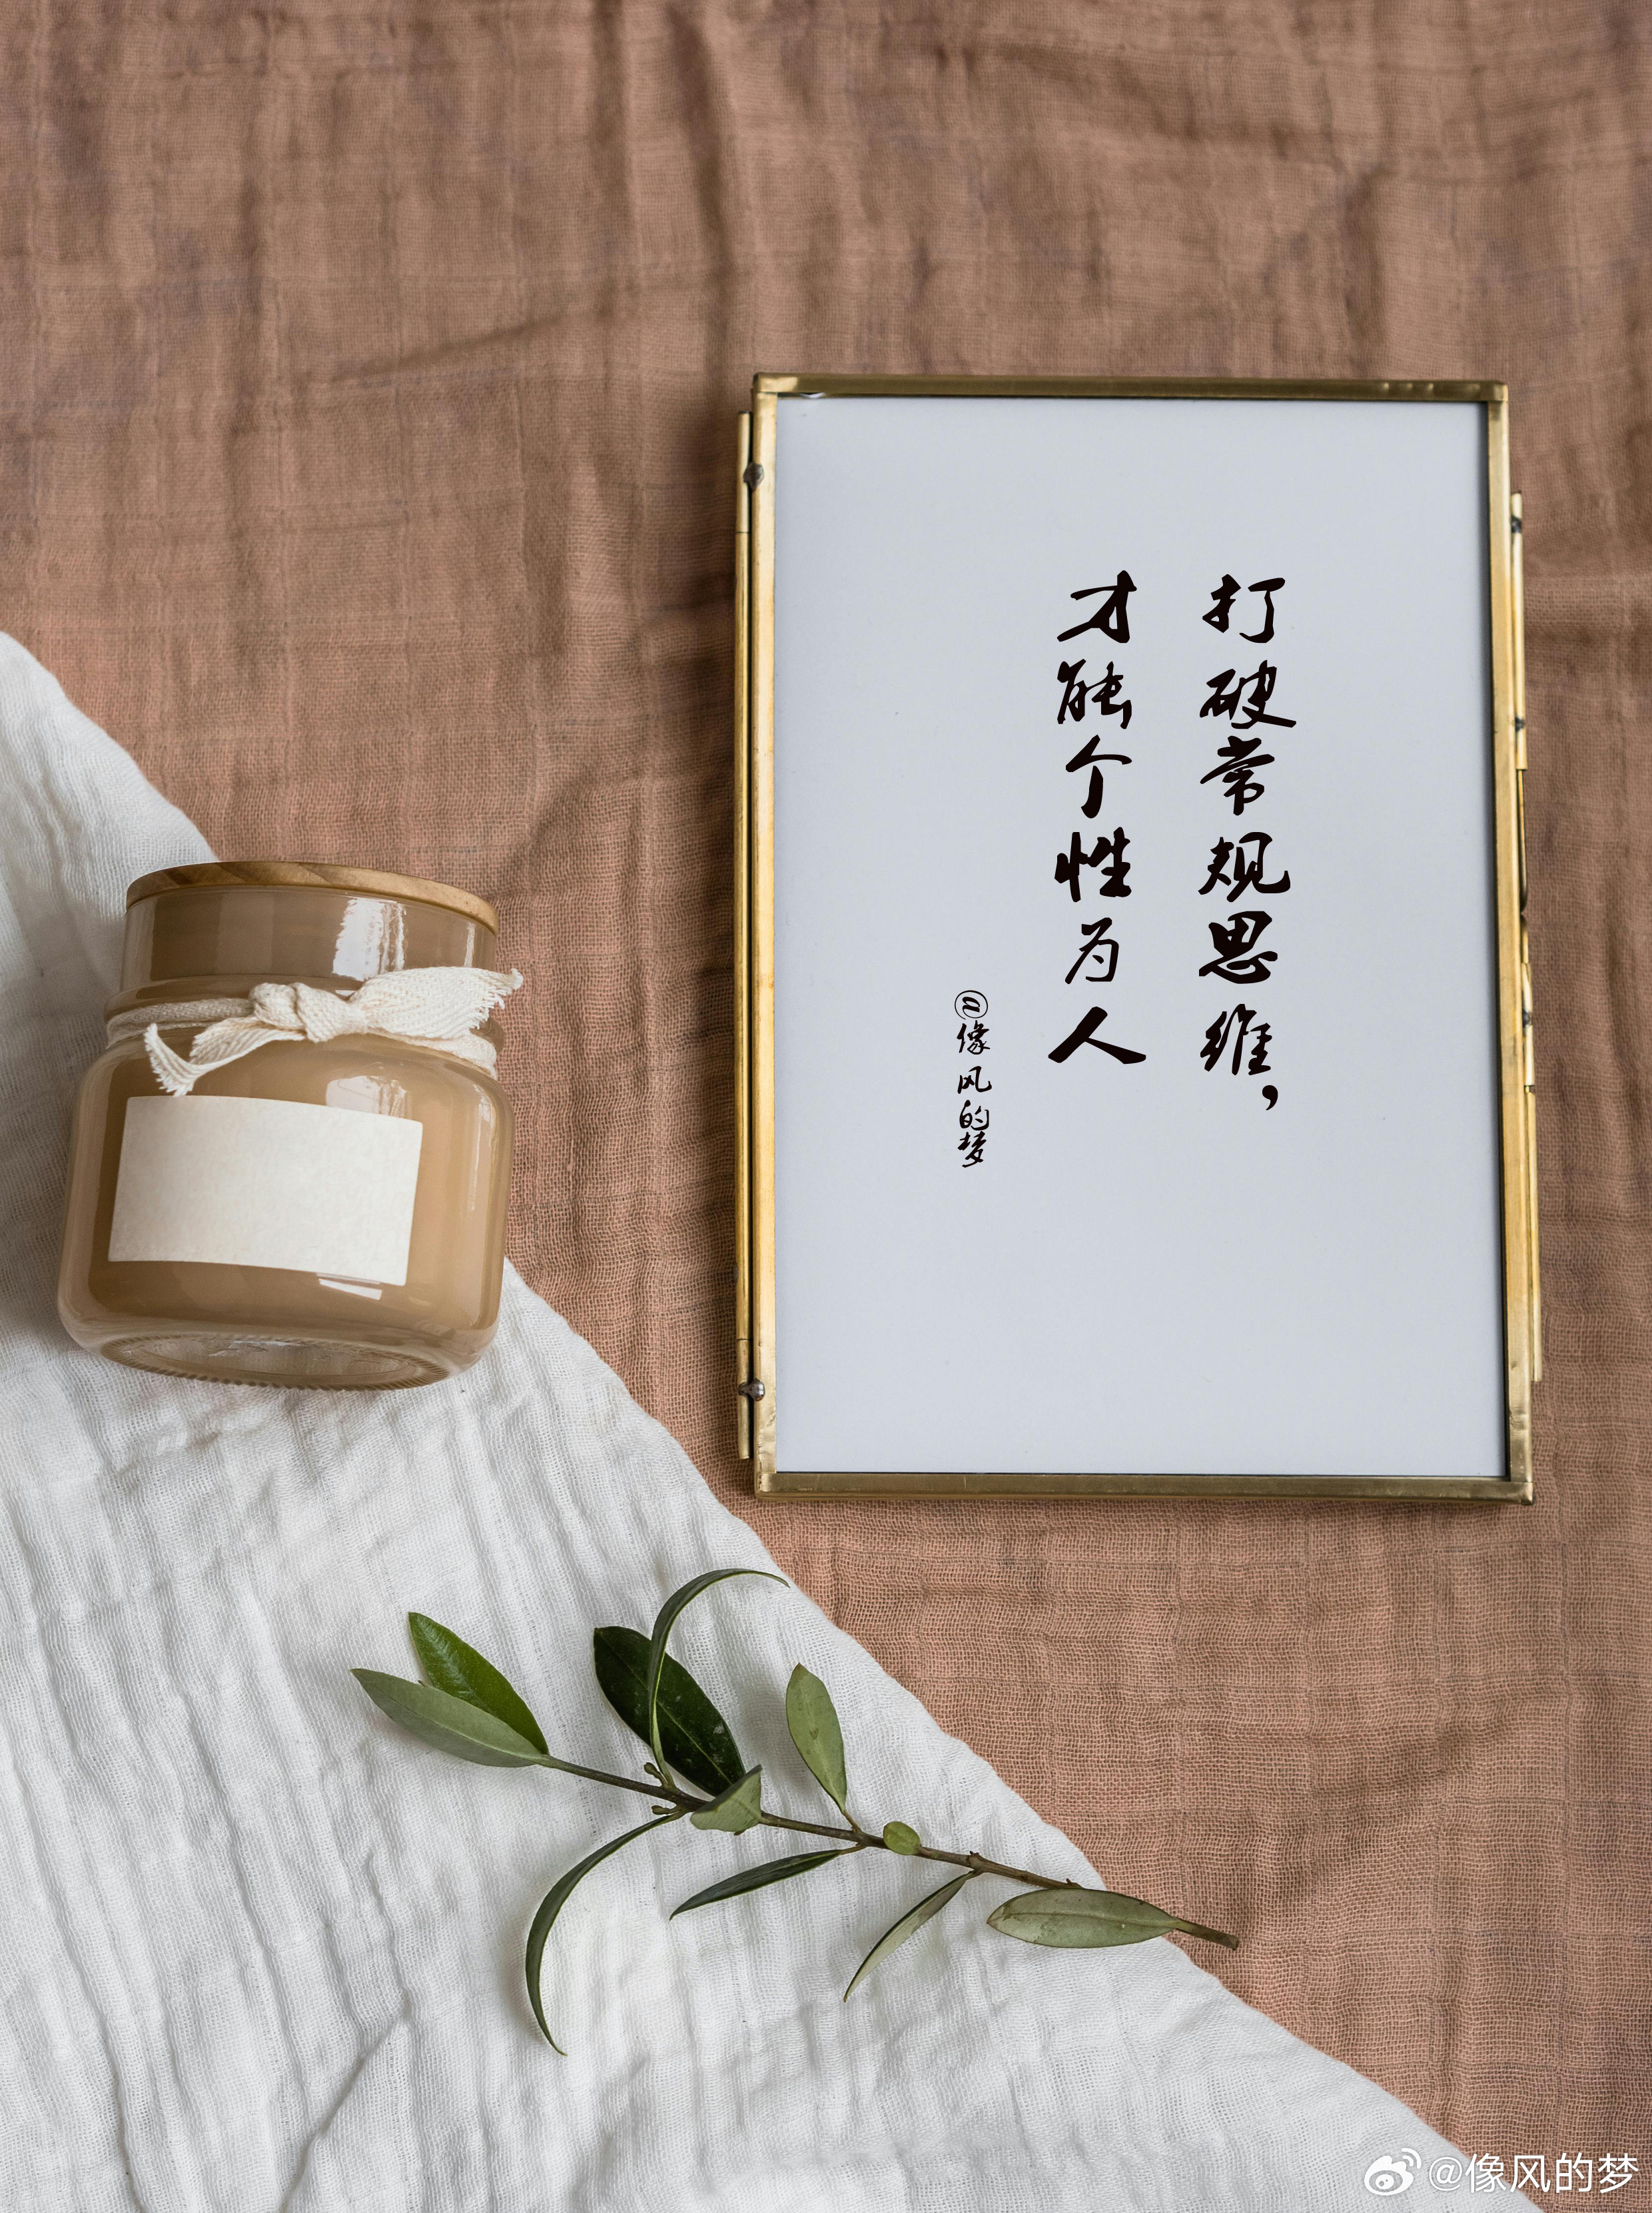 打破常规思维，
才能个性为人
@像风的梦
@像风的梦